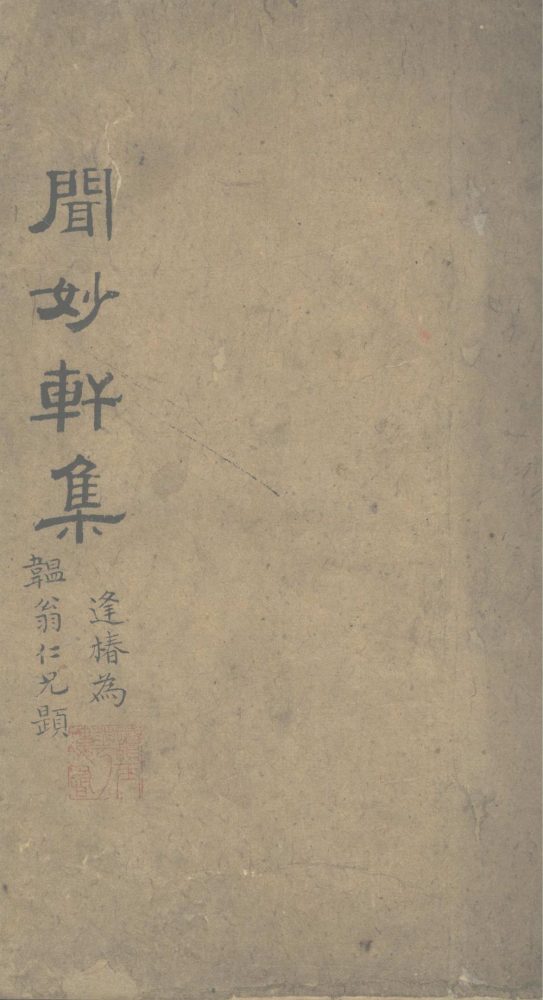 聞妙軒集
逢椿為
韞翁仁兄題